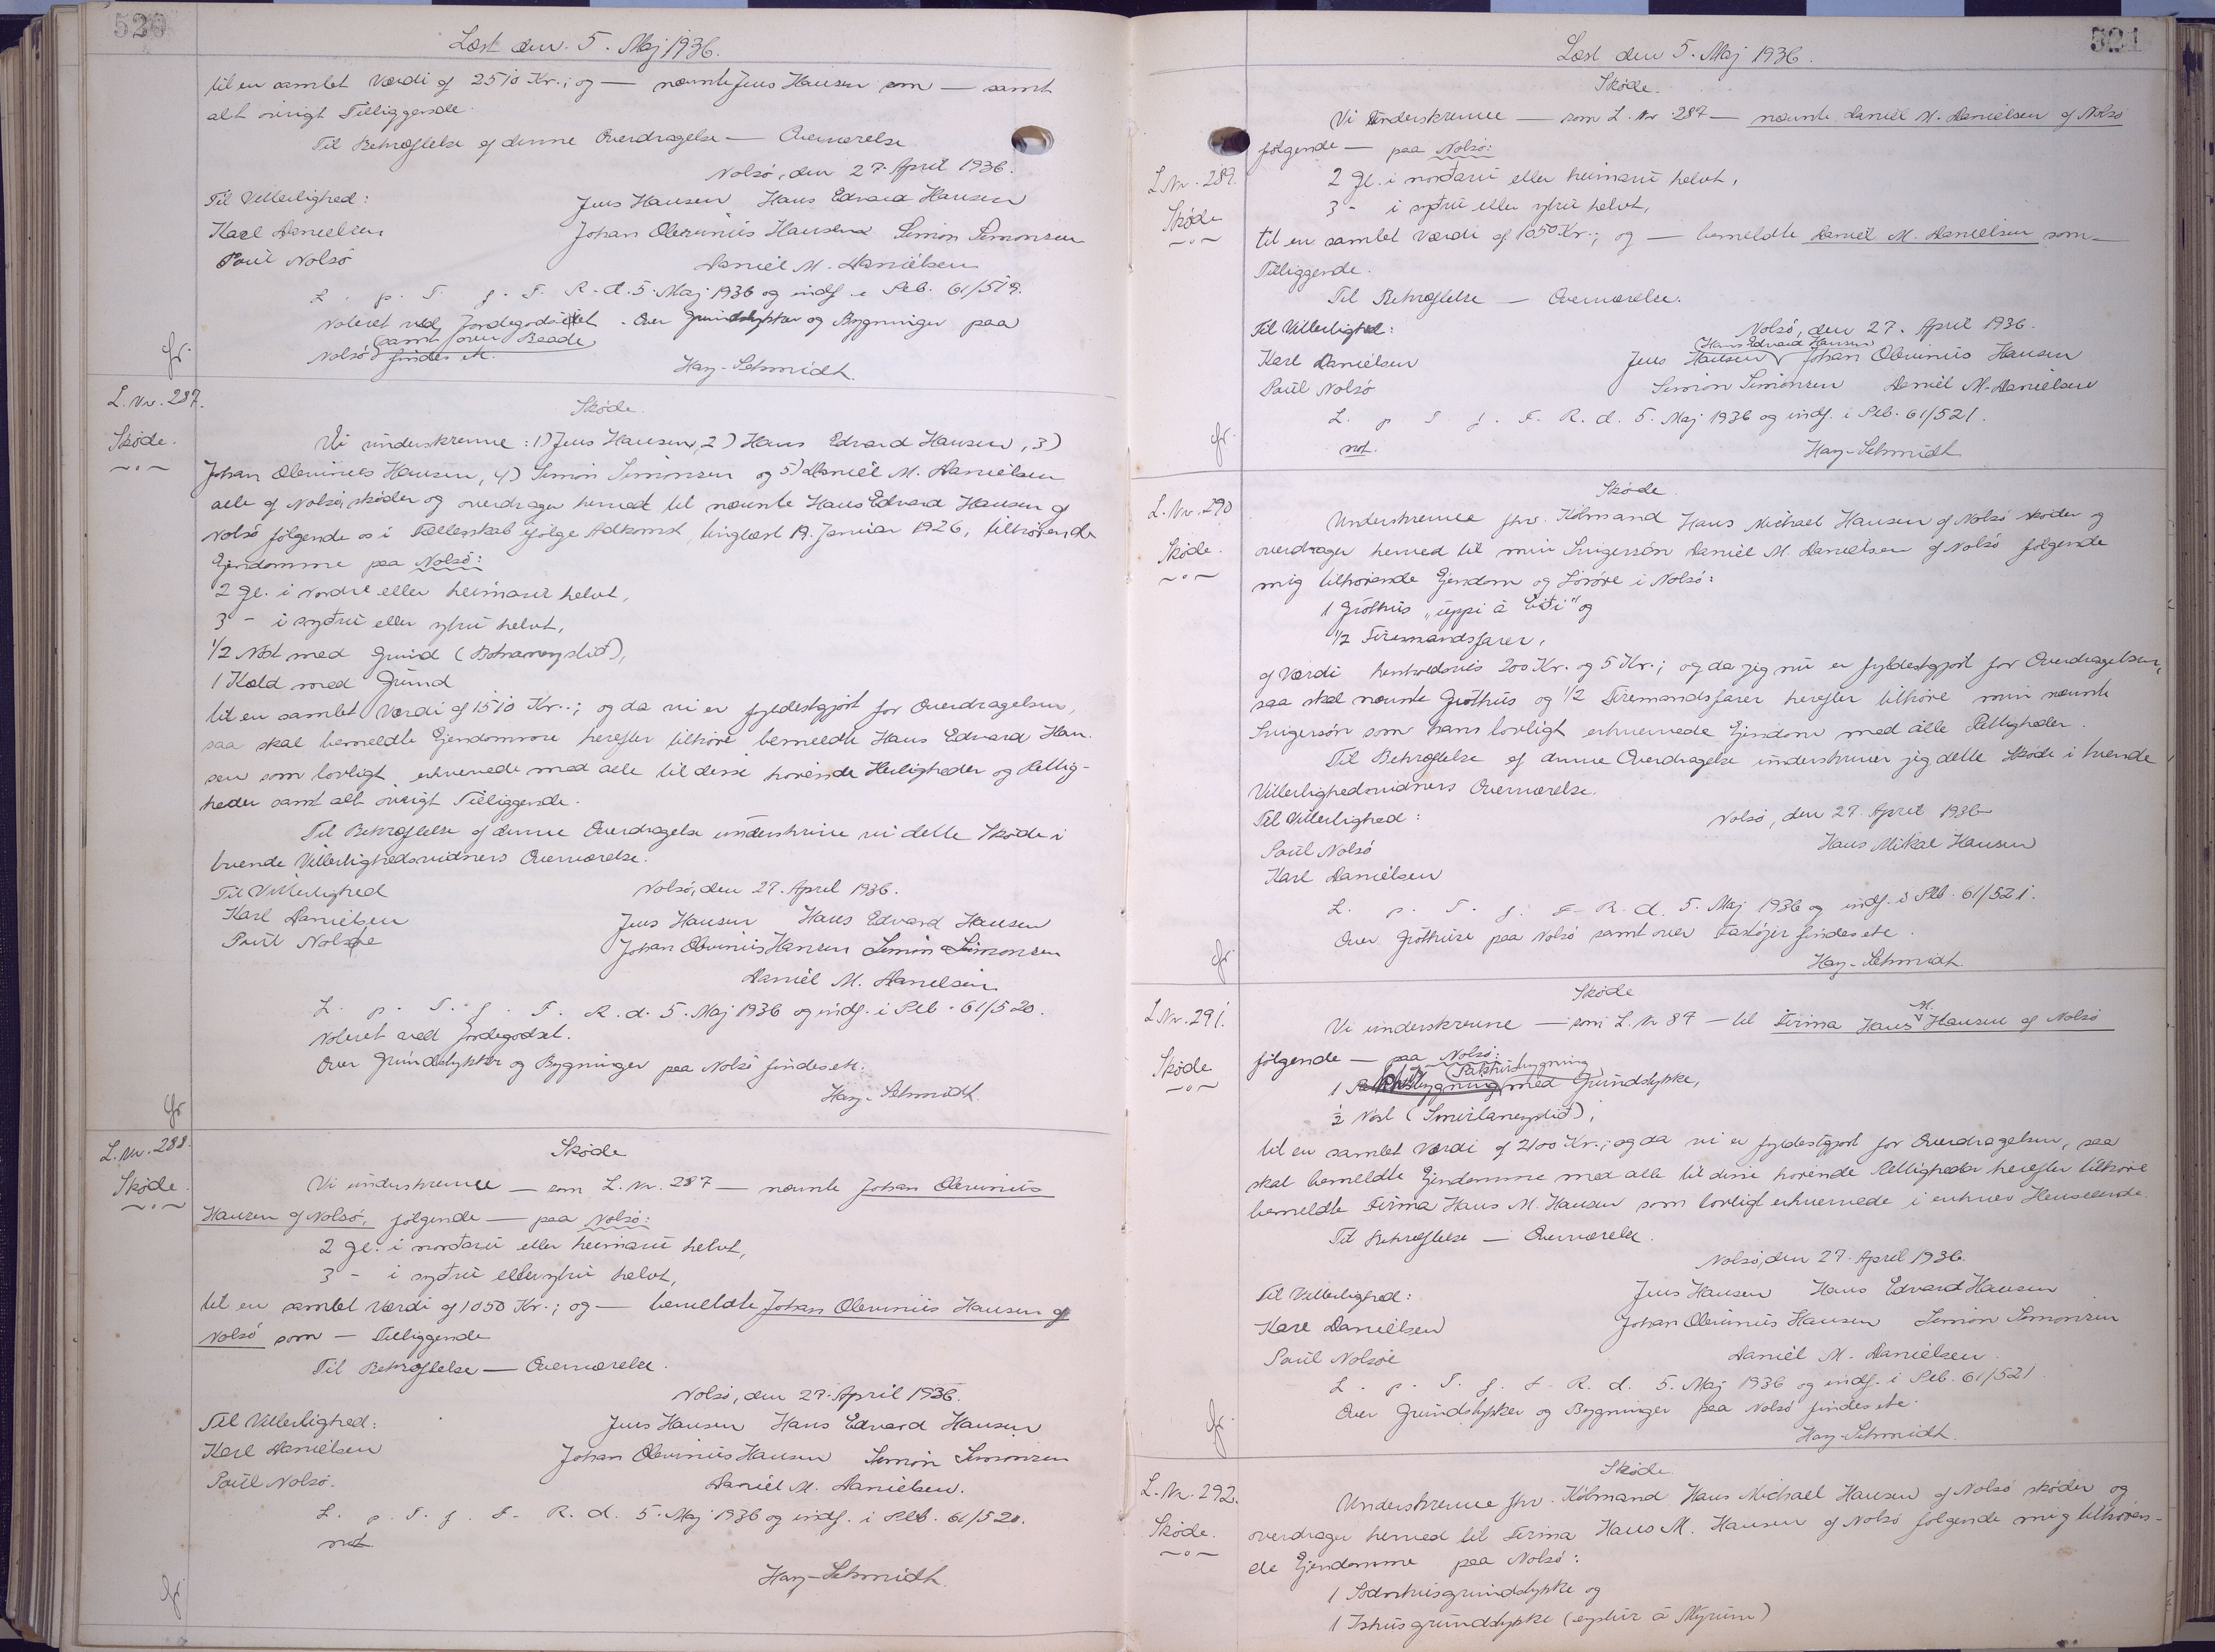 520
Læst den 5. Maj 1936.
til en samlet Værdi af 2510 Kr.; og — nævnte Jens Hansen som — samt
alt øvrigt Tilliggende.
Til Bekræftelse af denne Overdragelse — Overværelse
Nolsø, den 27. April 1936.
Til Vitterlighed: Jens Hansen Hans Edvard Hansen
Karl Danielsen Johan Olevinius Hansen Simon Simonsen
Poul Nolsø Daniel M. Danielsen
L. p. T. f. F. R. d. 5. Maj 1936 og indf. i Pcb. 61/519.
Noteret ved Jordegodset. Over Grundstykker og Bygninger paa
Nolsø (samt over Baade) findes etc.
gr. Hay-Schmidt.
L. Nr. 287. Skøde.
Skøde. Vi underskrevne: 1) Jens Hansen, 2) Hans Edvard Hansen, 3)
Johan Olevinius Hansen, 4) Simon Simonsen og 5) Daniel M. Danielsen
alle af Nolsø, skøder og overdrager herved til nævnte Hans Edvard Hansen af
Nolsø følgende os i Fællesskab ifølge Adkomst, tinglæst 19. Januar 1926, tilhørende
Ejendomme paa Nolsø:
2 gl. i nordre eller heimaru helvt,
3 - i syðru eller ytru helvt,
1/2 Nøst med Grund
1 Kald med Grund
til en samlet Værdi af 1510 Kr.; og da vi er fyldestgjort for Overdragelsen,
saa skal bemeldte Ejendomme herefter tilhøre bemeldte Hans Edvard Han-
sen som lovligt erhvervede med alle til disse hørende Herligheder og Rettig-
heder samt alt øvrigt Tilliggende.
Til Bekræftelse af denne Overdragelse underskrive vi dette Skøde i
tvende Vitterlighedsvidners Overværelse.
Til Vitterlighed Nolsø, den 27. April 1936.
Karl Danielsen Jens Hansen Hans Edvard Hansen
Poul Nolsøe Johan Olevinius Hansen Simon Simonsen
Daniel M. Danielsen
L. p. T. f. F. R. d. 5. Maj 1936 og indf. i Pcb. 61/520.
Noteret ved Jordegodset.
Over Grundstykker og Bygninger paa Nolsø findes etc.
gr. Hay-Schmidt.
L. Nr. 288. Skøde
Skøde. Vi underskrevne — som L. Nr. 287 — nævnte Johan Olevinius
Hansen af Nolsø, følgende — paa Nolsø:
2 gl. i norðaru eller heimaru helvt,
3 - i syðru eller ytru helvt,
til en samlet Værdi af 1050 Kr.; og — bemeldte Johan Olevinius Hansen af
Nolsø som — Tilliggende
Til Bekræftelse — Overværelse.
Nolsø, den 27. April 1936.
Til Vitterlighed: Jens Hansen Hans Edvard Hansen
Karl Danielsen Johan Olevinius Hansen Simon Simonsen
Poul Nolsø. Daniel M. Danielsen.
L. p. T. f. F. R. d. 5. Maj 1936 og indf. i Pcb. 61/520.
not.
gr. Hay-Schmidt.
521
Læst den 5. Maj 1936.
Skøde.
Vi Underskrevne — som L. Nr 287 — nævnte Daniel M. Danielsen af Nolsø
følgende — paa Nolsø:
L Nr. 289. 2 gl. i norðaru eller heimaru helvt,
Skøde 3 - i syðru eller ytru helvt,
til en samlet Værdi af 1050 Kr.; og — bemeldte Daniel M. Danielsen som —
Tilliggende.
Til Bekræftelse — Overværelse.
Til Vitterlighed: Nolsø, den 27. April 1936.
Karl Danielsen Jens Hansen (Hans Edvard Hansen) Johan Olevinius Hansen
Poul Nolsø Simon Simonsen Daniel M. Danielsen
L. p T f. F. R. d. 5. Maj 1936 og indf. i Pcb. 61/521.
not.
gr. Hay-Schmidt
L. Nr. 290 Skøde.
Underskrevne fhv. Købmand Hans Michael Hansen af Nolsø skøder og
Skøde. overdrager herved til min Svigersøn Daniel M. Danielsen af Nolsø følgende
mig tilhørende Ejendom og Løsøre i Nolsø:
1 Gróthús "uppi á Eiði" og
1/2 Firemandsfarer,
af Værdi henholdsvis 200 Kr. og 5 Kr.; og da jeg nu er fyldestgjort for Overdragelsen,
saa skal nævnte Gróthús og 1/2 Firemandsfarer herefter tilhøre min nævnte
Svigersøn som hans lovligt erhvervede Ejendom med alle Rettigheder.
Til Bekræftelse af denne Overdragelse underskriver jeg dette Skøde i tvende
Vitterlighedsvidners Overværelse.
Til Vitterlighed: Nolsø, den 27. April 1936
Poul Nolsø Hans Mikal Hansen
Karl Danielsen
L. p. T. f. F. R. d. 5. Maj 1936 og indf. i Pcb. 61/521.
Over Gróthuse paa Nolsø samt over Fartøjer findes etc.
gr. Hay-Schmidt
Skøde
L Nr. 291. Vi underskrevne — som L. Nr 87 — til Firma Hans M Hansen af Nolsø
Skøde følgende — paa Nolsø:
1 Pakhusbygning med Grundstykke,
1/2 Nøst
til en samlet Værdi af 2100 Kr.; og da vi er fyldestgjort for Overdragelsen, saa
skal bemeldte Ejendomme med alle til disse hørende Rettigheder herefter tilhøre
bemeldte Firma Hans M. Hansen som lovligt erhvervede i enhver Henseende.
Til Bekræftelse — Overværelse.
Nolsø, den 27. April 1936.
Til Vitterlighed: Jens Hansen Hans Edvard Hansen
Karl Danielsen Johan Olevinius Hansen Simon Simonsen
Poul Nolsøe Daniel M. Danielsen
L. p. T. f. F. R. d. 5. Maj 1936 og indf. i Pcb. 61/521
Over Grundstykker og Bygninger paa Nolsø findes etc.
gr. Hay-Schmidt.
L. Nr. 292. Skøde.
Underskrevne fhv. Købmand Hans Michael Hansen af Nolsø skøder og
Skøde. overdrager herved til Firma Hans M. Hansen af Nolsø følgende mig tilhøren-
de Ejendomme paa Nolsø:
1 og
1 Ishusgrundstykke (eystur á Mýrum)